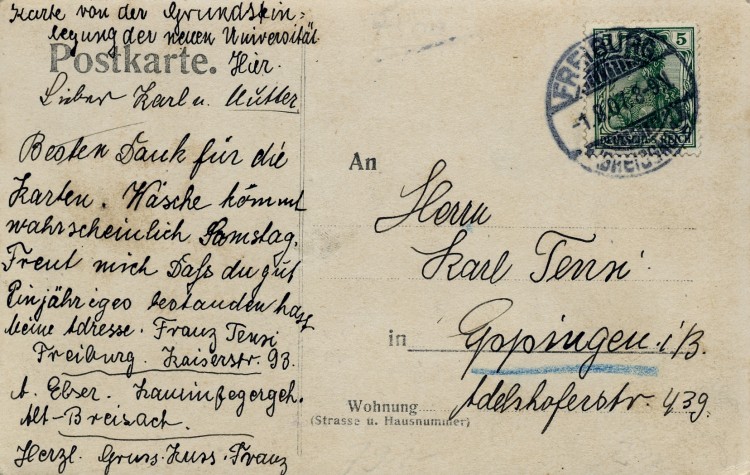 Karte von der Grundstein-
legung der neuen Universität
Postkarte.
Hier.
Lieber Karl u. Mutter
Besten Dank für die
Karten. Wäsche kommt
wahrscheinlich Samstag.
Freut mich Daß du gut
Einjähriges bestanden hast
Meine Adresse. Franz Tensi
Freiburg. Kaiserstr. 93.
Kaminfegergeh.
Alt-Breisach.
Herzl. Gruss. Kuss. Franz
FREIBURG
5
DEUTSCHES REICH
An
Herrn
Karl Tensi
in Eppingen i/B.
Wohnung
(Strasse u. Hausnummer)
Adelshoferstr. 439.